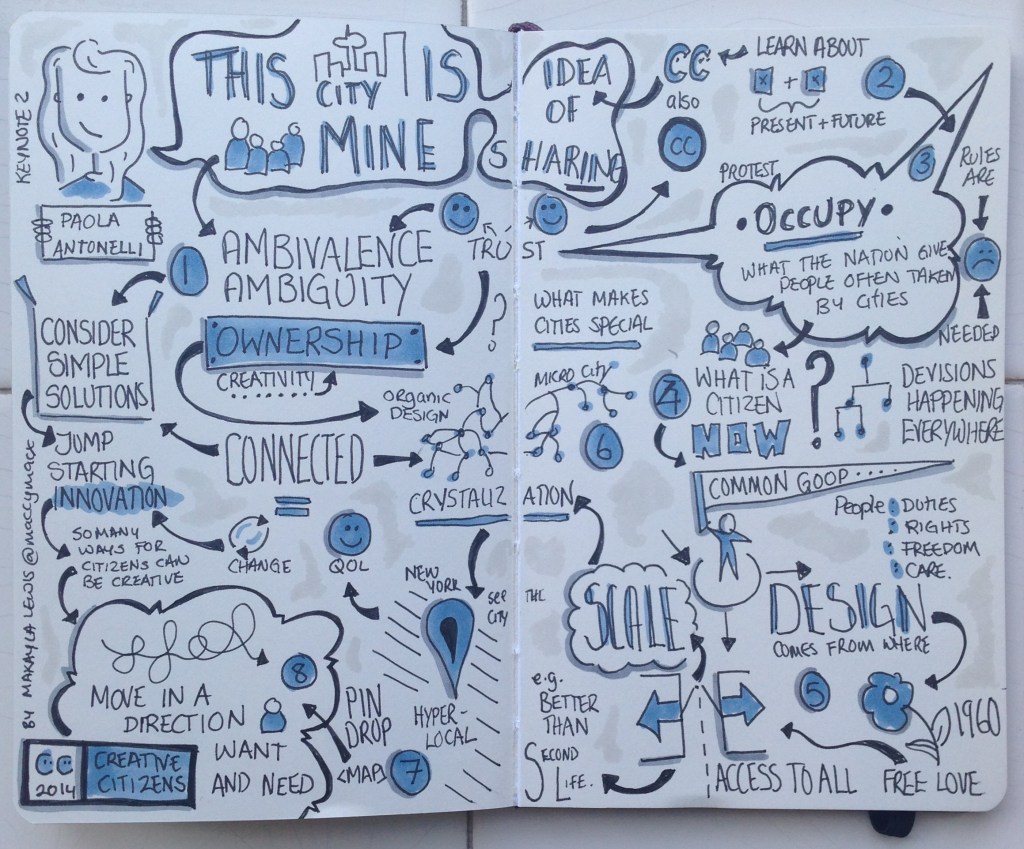 KEYNOTE 2
PAOLA
ANTONELLI
THIS CITY IS
MINE
IDEA
OF
SHARING
CC
also
CC
LEARN ABOUT
x + x
PRESENT + FUTURE
2
3
RULES
ARE
NEEDED
PROTEST
• OCCUPY •
WHAT THE NATION GIVE
PEOPLE OFTEN TAKEN
BY CITIES
TRUST
1
AMBIVALENCE
AMBIGUITY
OWNERSHIP
?
CREATIVITY
CONSIDER
SIMPLE
SOLUTIONS
JUMP
STARTING
INNOVATION
SO MANY
WAYS FOR
CITIZENS CAN
BE CREATIVE
CONNECTED
=
CHANGE
QOL
ORGANIC
DESIGN
MICRO CITY
6
CRYSTALIZATION
WHAT MAKES
CITIES SPECIAL
4
WHAT IS A
CITIZEN
NOW
?
DEVISIONS
HAPPENING
EVERYWHERE
COMMON GOOP.....
People: DUTIES
: RIGHTS
: FREEDOM
: CARE.
DESIGN
COMES FROM WHERE
5
1960
FREE LOVE
ACCESS TO ALL
SCALE
e.g.
BETTER
THAN
SECOND
LIFE.
NEW
YORK
SEE THE
CITY
HYPER-
LOCAL
PIN
DROP
<MAP>
7
8
MOVE IN A
DIRECTION
WANT
AND NEED
CC
2014
CREATIVE
CITIZENS
BY MAKAYLA LEWIS @maccymacx